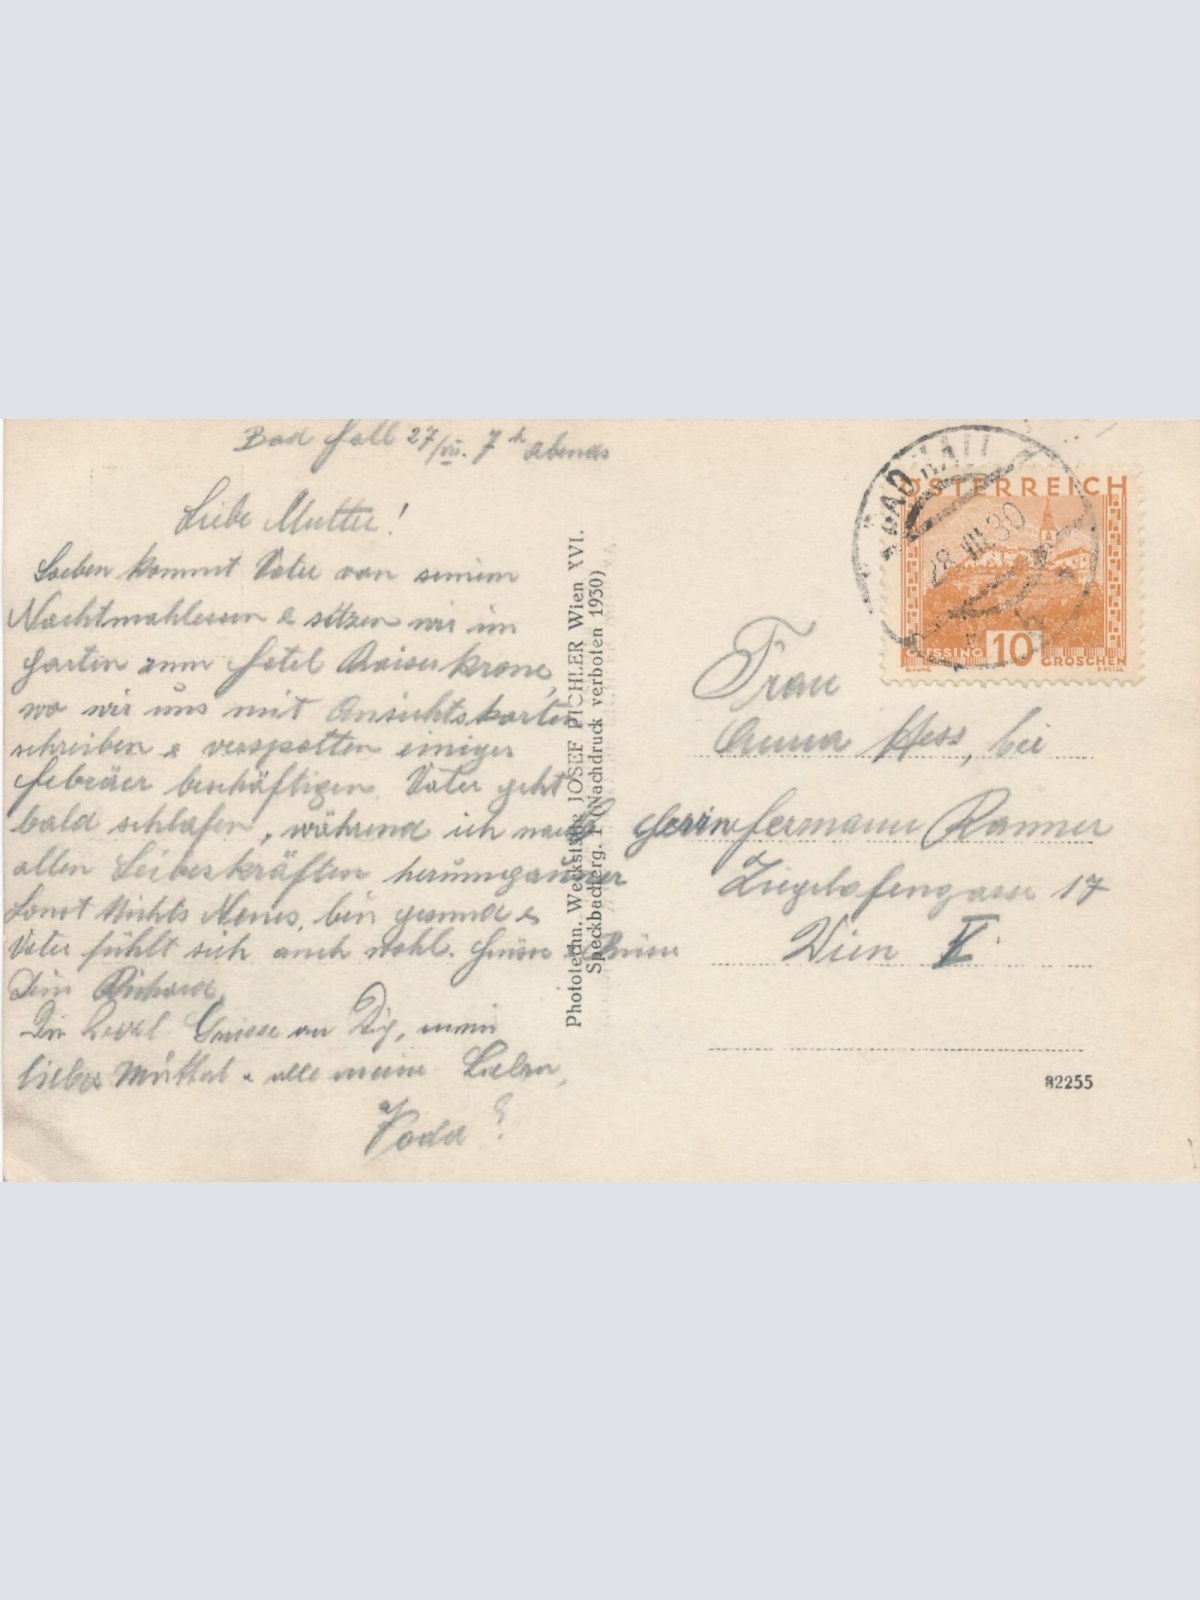 Bad Hall 27/VII. 7 h abends
Liebe Mutter!
Soeben kommt Vater von seinem
Nachtmahlessen & sitzen wir im
Garten zum Hotel Kaiserkrone,
wo wir uns mit Ansichtskarten
schreiben & verspotten einiger
Hebräer beschäftigen. Vater geht
bald schlafen, während ich nach
allen Leibeskräften herum
Sonst Nichts Neues, bin gesund &
Vater fühlt sich auch wohl. Grüsse Küsse
Dein Richard.
Grüsse an Dig, mein
liebes & alle meine Lieben,
Voda
Phototechn. Werkstätte JOSEF PICHLER Wien XVI.
Speckbacherg. (Nachdruck verboten 1930)
BAD HALL
28.VII.30
ÖSTERREICH
GÜSSING 10 GROSCHEN
Frau
Anna Hess, bei
Herrn Hermann Ranner
Ziegelofengasse 17
Wien V.
82255